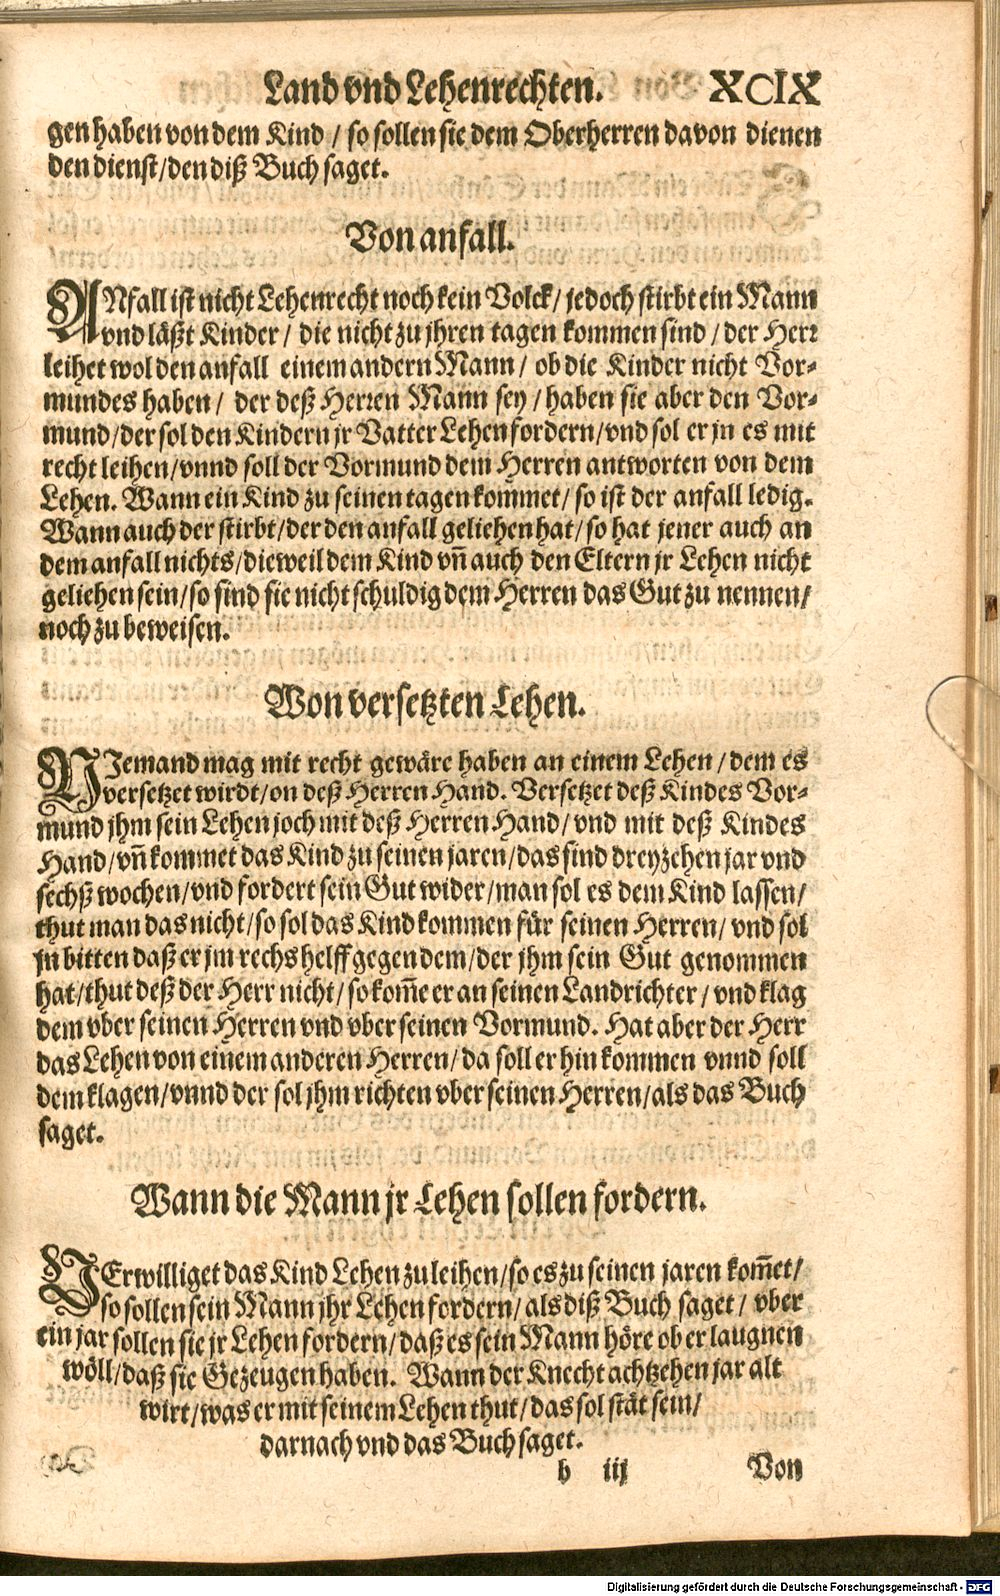 Land vnd Lehenrechten. XCIX
gen haben von dem Kind / so sollen sie dem Oberherren davon dienen
den dienst/den diß Buch saget.
Von anfall.
ANfall ist nicht Lehenrecht noch kein Volck/ jedoch stirbt ein Mann
vnd läßt Kinder/ die nicht zu jhren tagen kommen sind / der Herr
leihet wol den anfall einem andern Mann/ ob die Kinder nicht Vor-
mundes haben/ der deß Herren Mann sey / haben sie aber den Vor-
mund/der sol den Kindern jr Vatter Lehen fordern/vnd sol er jn es mit
recht leihen/vnnd soll der Vormund dem Herren antworten von dem
Lehen. Wann ein Kind zu seinen tagen kommet/ so ist der anfall ledig.
Wann auch der stirbt/der den anfall geliehen hat/so hat jener auch an
dem anfall nichts/dieweil dem Kind vñ auch den Eltern jr Lehen nicht
geliehen sein/so sind sie nicht schuldig dem Herren das Gut zu nennen/
noch zu beweisen.
Won versetzten Lehen.
NIemand mag mit recht gewäre haben an einem Lehen / dem es
versetzet wirdt/on deß Herren Hand. Versetzet deß Kindes Vor-
mund jhm sein Lehen joch mit deß Herren Hand/ vnd mit deß Kindes
Hand/vñ kommet das Kind zu seinen jaren/das sind dreyzehen jar vnd
sechß wochen/vnd fordert sein Gut wider/man sol es dem Kind lassen/
thut man das nicht/so sol das Kind kommen für seinen Herren/ vnd sol
jn bitten daß er jm rechs helff gegen dem/der jhm sein Gut genommen
hat/thut deß der Herr nicht/ so kom̃e er an seinen Landrichter / vnd klag
dem vber seinen Herren vnd vber seinen Vormund. Hat aber der Herr
das Lehen von einem anderen Herren/da soll er hin kommen vnnd soll
dem klagen/vnnd der sol jhm richten vber seinen Herren/als das Buch
saget.
Wann die Mann jr Lehen sollen fordern.
VErwilliget das Kind Lehen zu leihen/so es zu seinen jaren kom̃et/
so sollen sein Mann jhr Lehen fordern/ als diß Buch saget / vber
ein jar sollen sie jr Lehen fordern/daß es sein Mann höre ob er laugnen
wöll/daß sie Gezeugen haben. Wann der Knecht achtzehen jar alt
wirt/was er mit seinem Lehen thut/das sol stät sein/
darnach vnd das Buch saget.
h iij Von
Digitalisierung gefördert durch die Deutsche Forschungsgemeinschaft - DFG